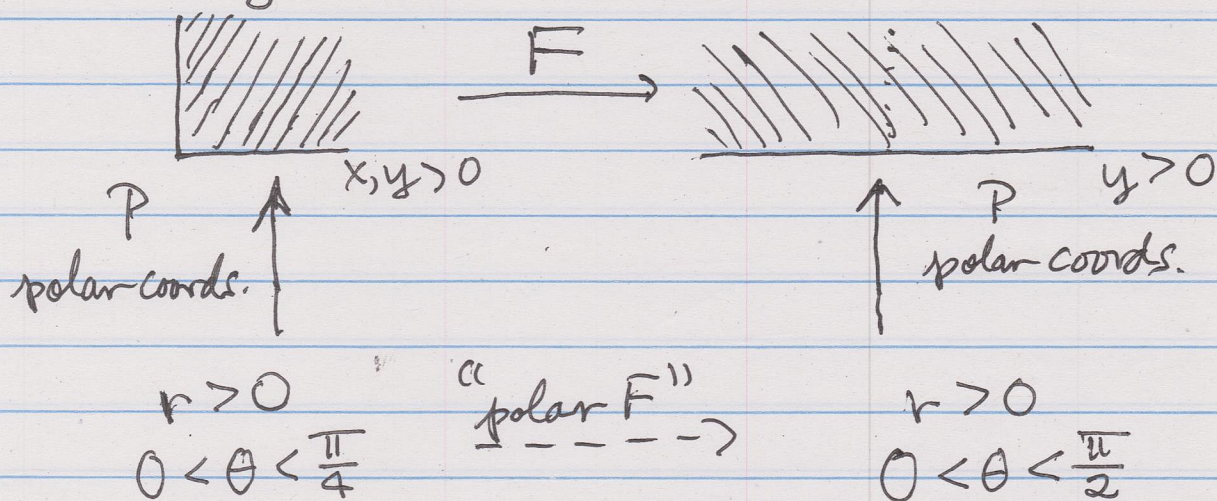 F
x, y > 0
y > 0
P
polar coords.
P
polar coords.
r > 0
"polar F"
r > 0
0 < θ < π/4
0 < θ < π/2